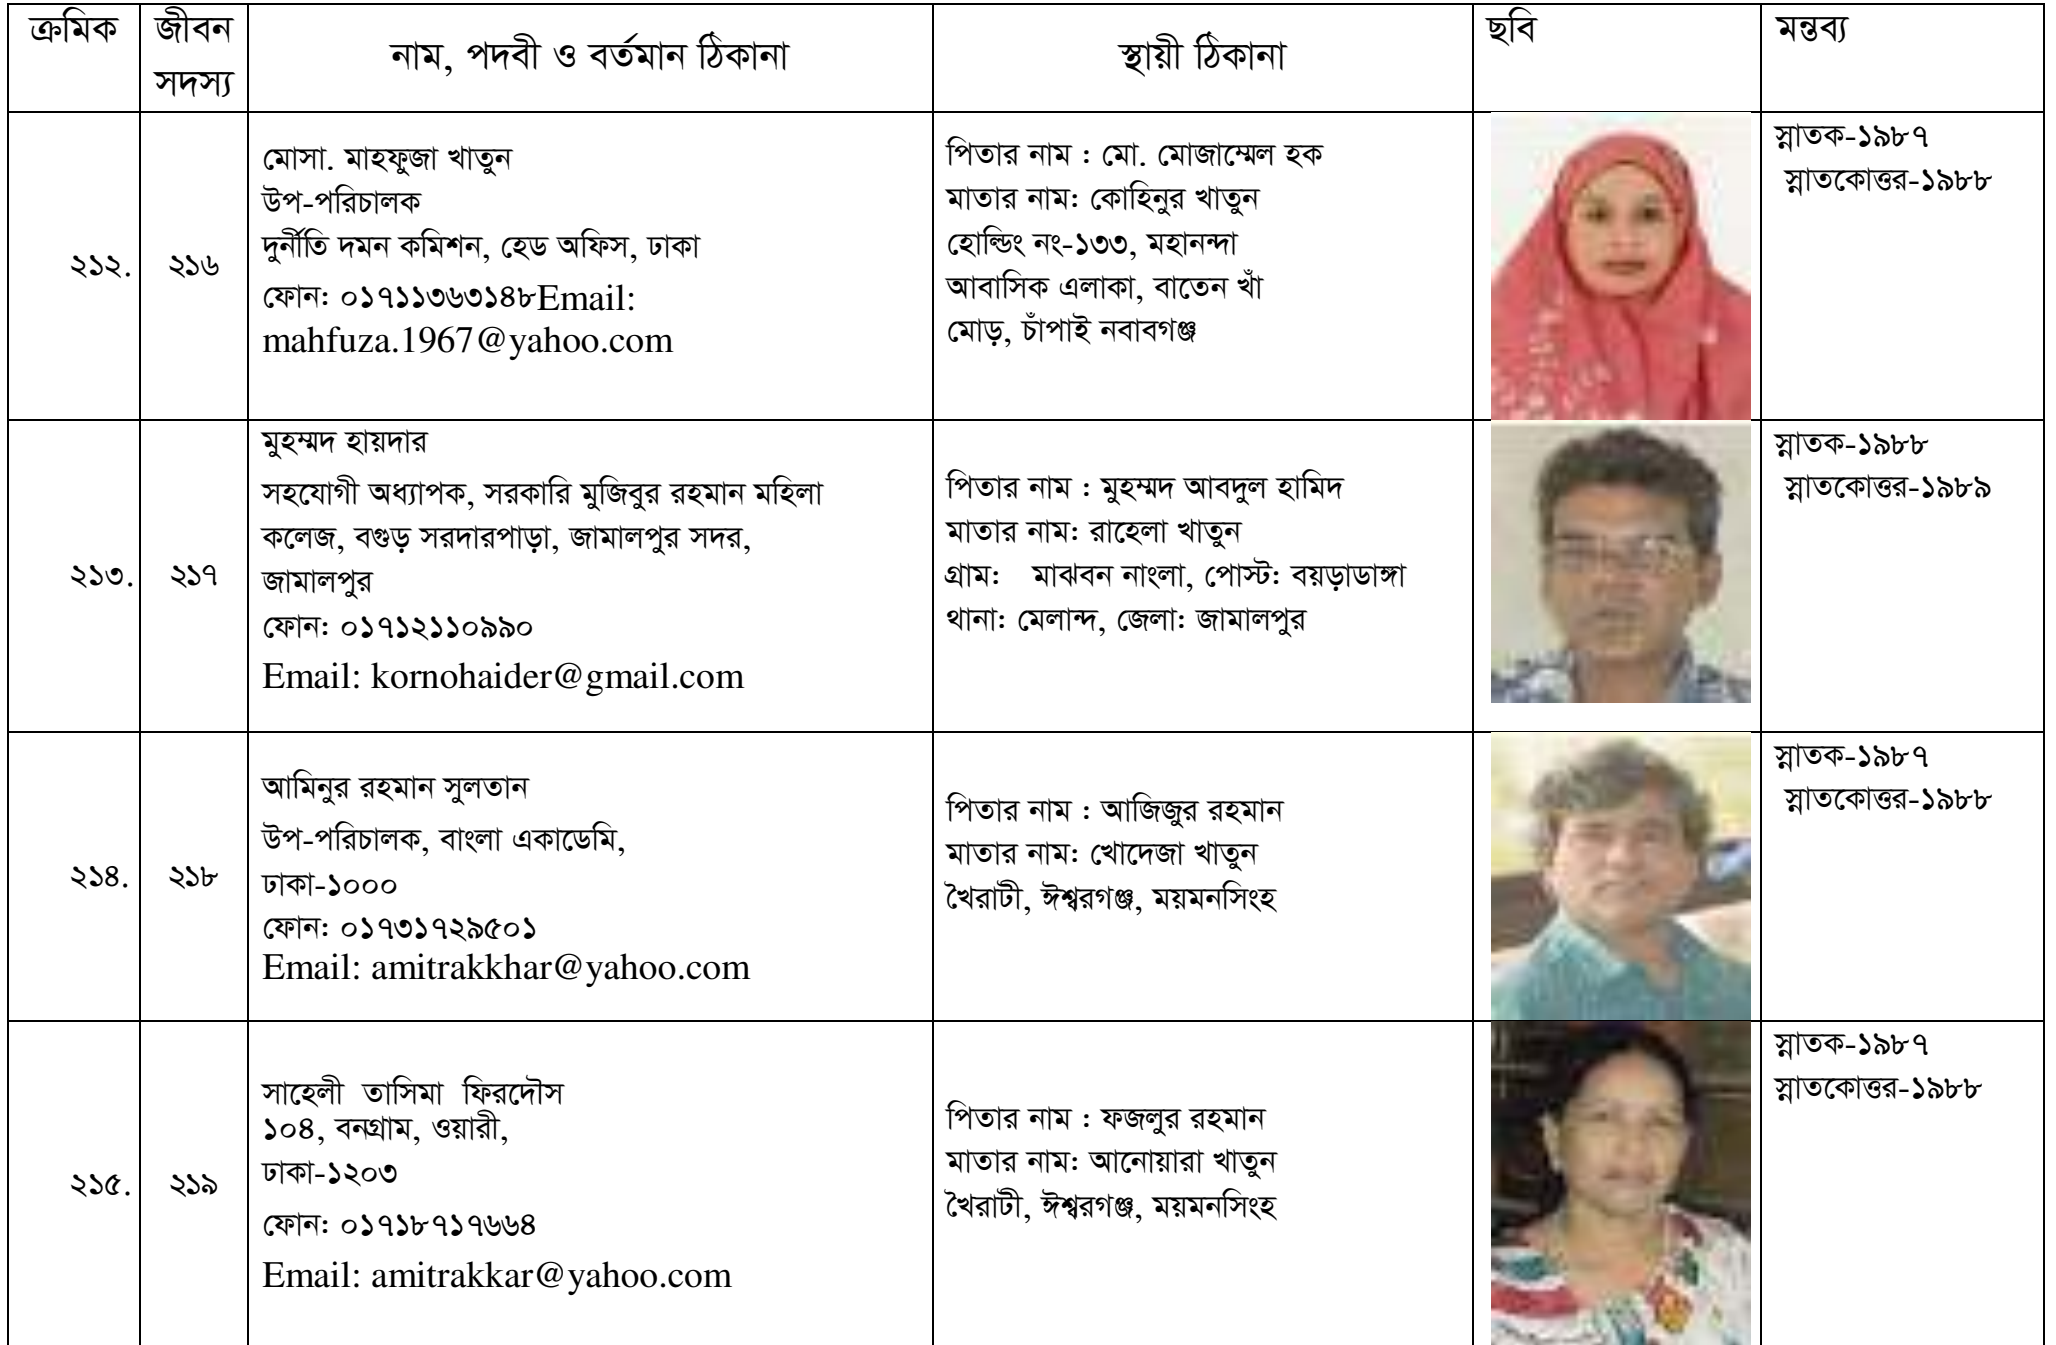 ক্রমিক
জীবন
সদস্য
নাম, পদবী ও বর্তমান ঠিকানা
স্থায়ী ঠিকানা
ছবি
মন্তব্য
২১২.
২১৬
মোসা. মাহফুজা খাতুন
উপ-পরিচালক
দুর্নীতি দমন কমিশন, হেড অফিস, ঢাকা
ফোন: ০১৭১১৩৬৩১৪৮Email:
mahfuza.1967@yahoo.com
পিতার নাম : মো. মোজাম্মেল হক
মাতার নাম: কোহিনুর খাতুন
হোল্ডিং নং-১৩৩, মহানন্দা
আবাসিক এলাকা, বাতেন খাঁ
মোড়, চাঁপাই নবাবগঞ্জ
স্নাতক-১৯৮৭
স্নাতকোত্তর-১৯৮৮
২১৩.
২১৭
মুহম্মদ হায়দার
সহযোগী অধ্যাপক, সরকারি মুজিবুর রহমান মহিলা
কলেজ, বগুড় সরদারপাড়া, জামালপুর সদর,
জামালপুর
ফোন: ০১৭১২১১০৯৯০
Email: kornohaider@gmail.com
পিতার নাম : মুহম্মদ আবদুল হামিদ
মাতার নাম: রাহেলা খাতুন
গ্রাম: মাঝবন নাংলা, পোস্ট: বয়ড়াডাঙ্গা
থানা: মেলান্দ, জেলা: জামালপুর
স্নাতক-১৯৮৮
স্নাতকোত্তর-১৯৮৯
২১৪.
২১৮
আমিনুর রহমান সুলতান
উপ-পরিচালক, বাংলা একাডেমি,
ঢাকা-১০০০
ফোন: ০১৭৩১৭২৯৫০১
Email: amitrakkhar@yahoo.com
পিতার নাম : আজিজুর রহমান
মাতার নাম: খোদেজা খাতুন
খৈরাটী, ঈশ্বরগঞ্জ, ময়মনসিংহ
স্নাতক-১৯৮৭
স্নাতকোত্তর-১৯৮৮
২১৫.
২১৯
সাহেলী তাসিমা ফিরদৌস
১০৪, বনগ্রাম, ওয়ারী,
ঢাকা-১২০৩
ফোন: ০১৭১৮৭১৭৬৬৪
Email: amitrakkar@yahoo.com
পিতার নাম : ফজলুর রহমান
মাতার নাম: আনোয়ারা খাতুন
খৈরাটী, ঈশ্বরগঞ্জ, ময়মনসিংহ
স্নাতক-১৯৮৭
স্নাতকোত্তর-১৯৮৮